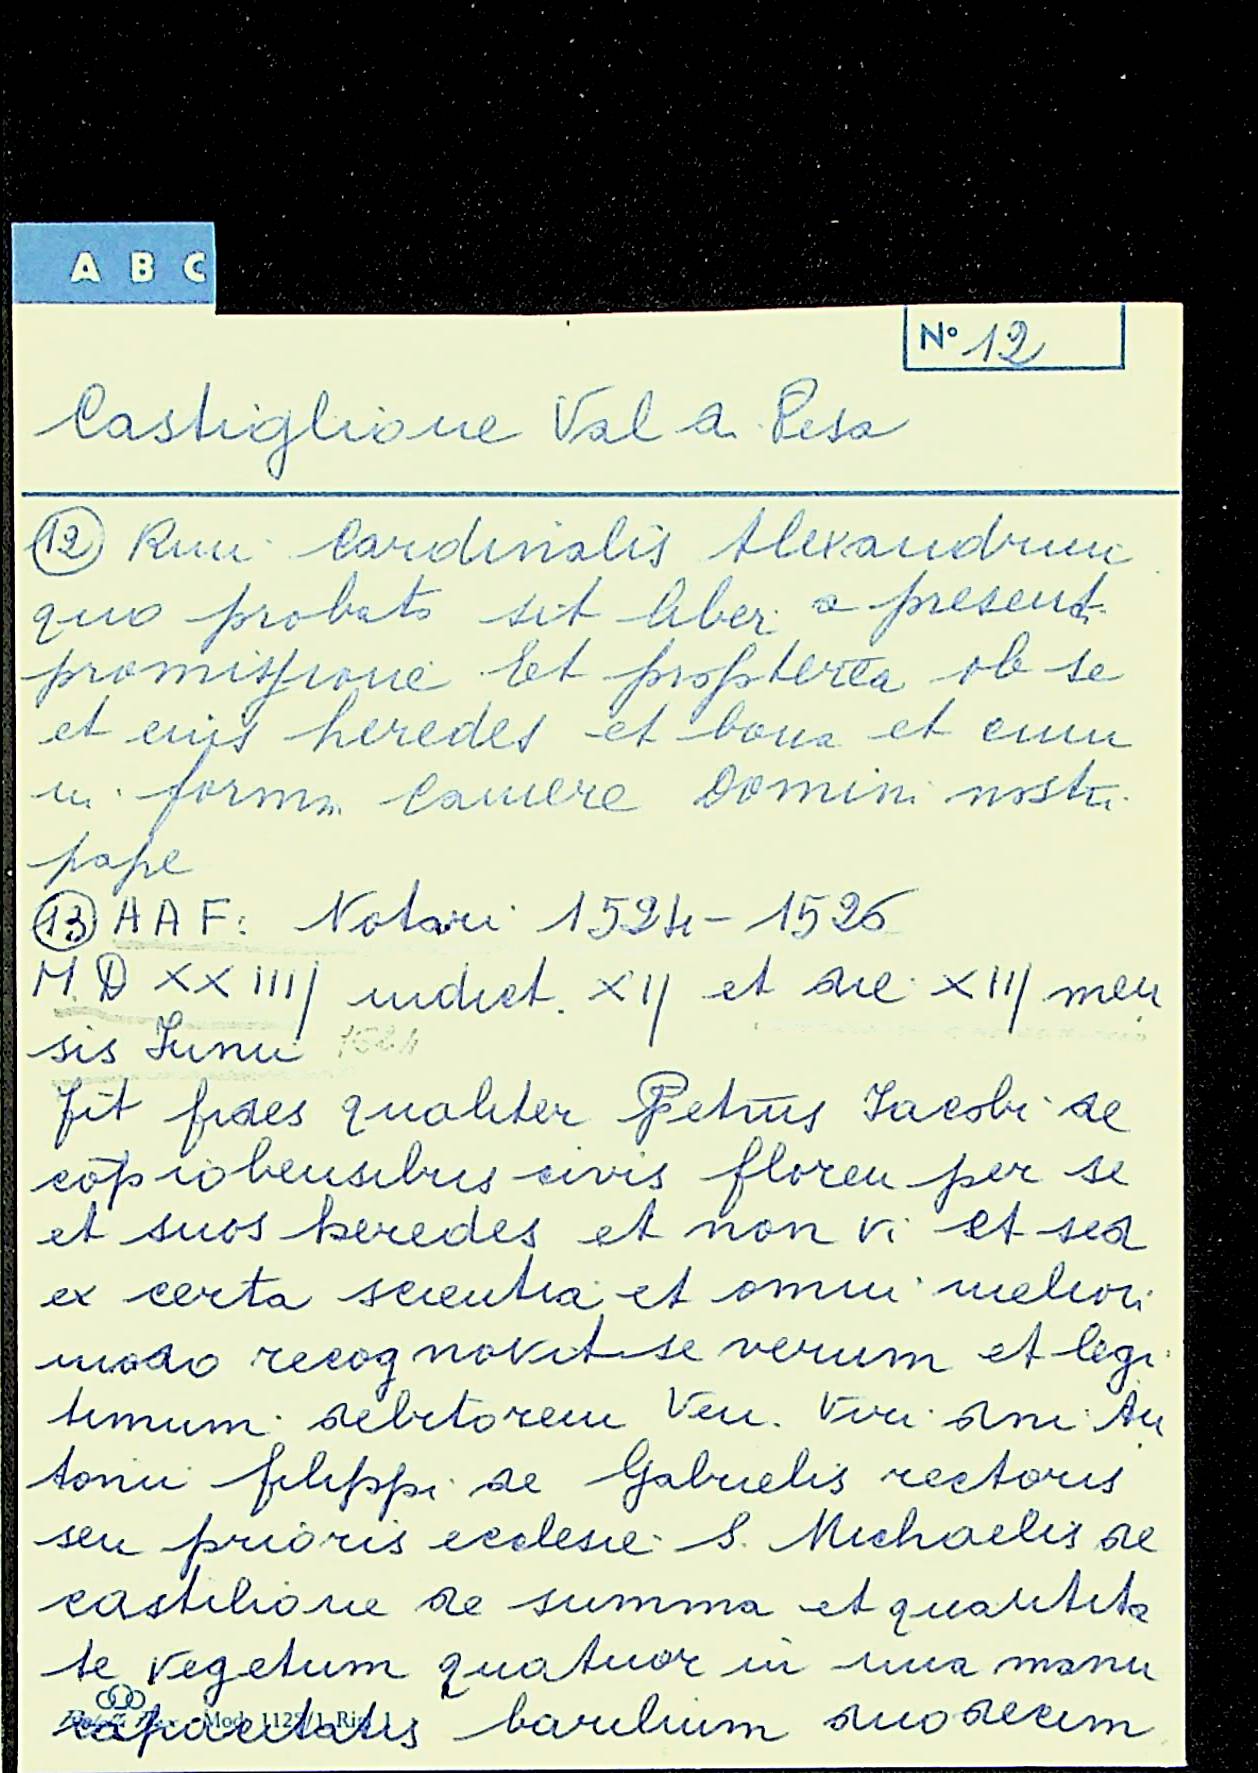 A B C
N° 12
Castiglione Val di Pesa
(12) Rmi Cardinalis Alexandrini
quo probato sit liber a presenti
promissione Et propterea ob se
et eius heredes et bona et cum
in forma Camere Domini nostri
pape
(13) A A F: Notari 1524-1526
M.D XXIIII indict. XII et die XIII men
sis Iunii 1524
fit fides qualiter Petrus Iacobi de
cōpiobensibus civis floren per se
et suos heredes et non vi et sed
ex certa scientia et omni meliori
modo recognovit se verum et legi
timum debitorem Ven. Viri dni An
tonii filippi de Gabrielis rectoris
seu prioris ecclesie S. Michaelis de
castilione de summa et quantita
te vegetum quatuor in una manu
capacitatis barilium duodecim
Mod. 1125/1 Rig. 1